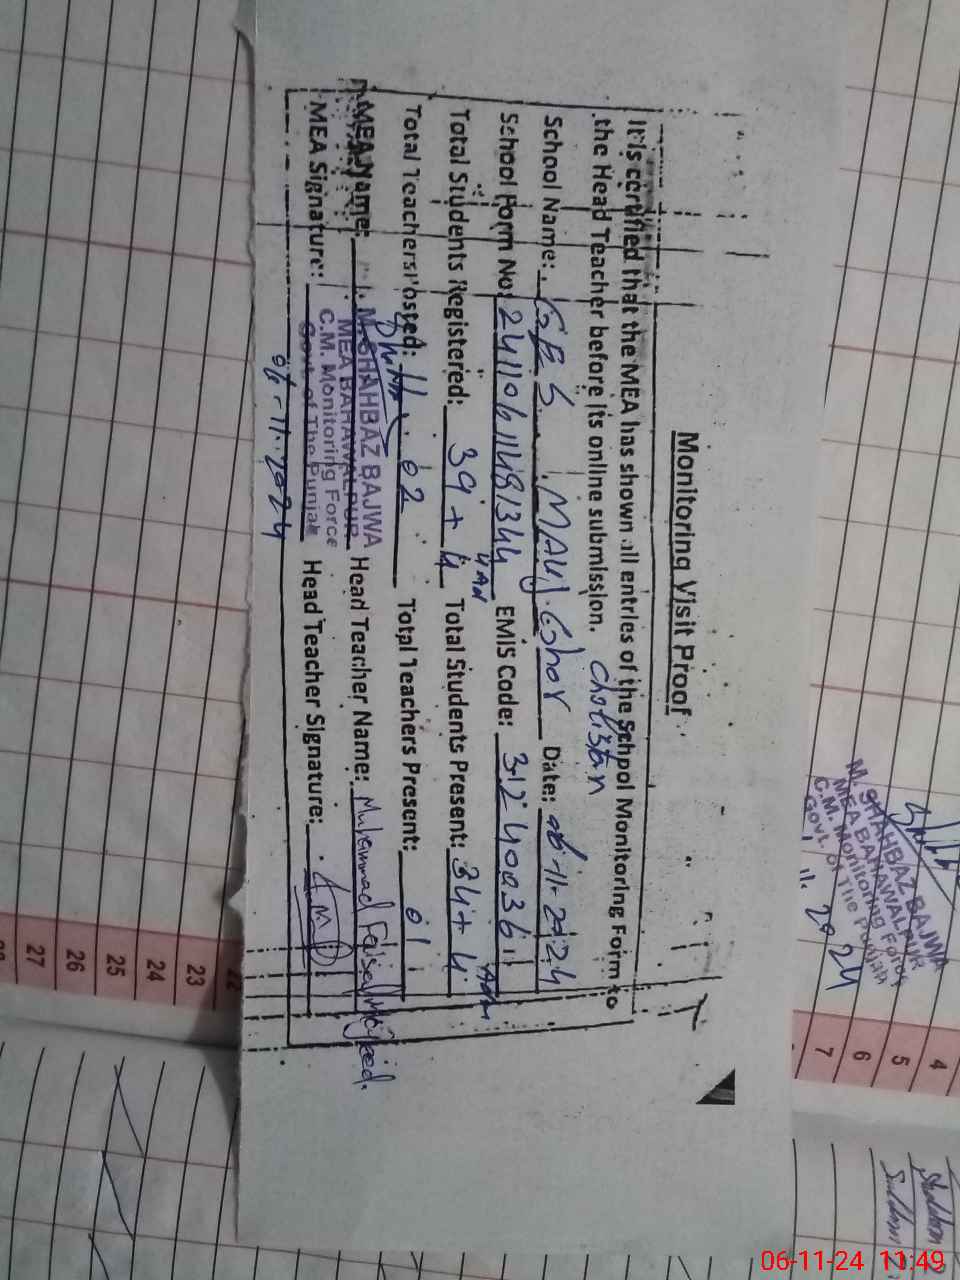 Monitoring Visit Proof
It is certified that the MEA has shown all entries of the School Monitoring Form to
the Head Teacher before its online submission.
Cholistan
School Name: GES Mauj Ghar Date: 06-11-2024
School Form No: 24110611481344 EMIS Code: 31240036
Total Students Registered: 39 + 4 Total Students Present: 34 + 4
Total Teachers Posted: 02 Total Teachers Present: 01
MEA Name: M. SHAHBAZ BAJWA Head Teacher Name: Muhammad
MEA BAHAWALPUR
C.M. Monitoring Force
Govt. of The Punjab
MEA Signature: Head Teacher Signature:
06-11-2024
M. SHAHBAZ BAJWA
MEA BAHAWALPUR
C.M. Monitoring Force
Govt. of The Punjab
11. 2024
4
5
6
7
22
23
24
25
26
27
28
06-11-24 11:49